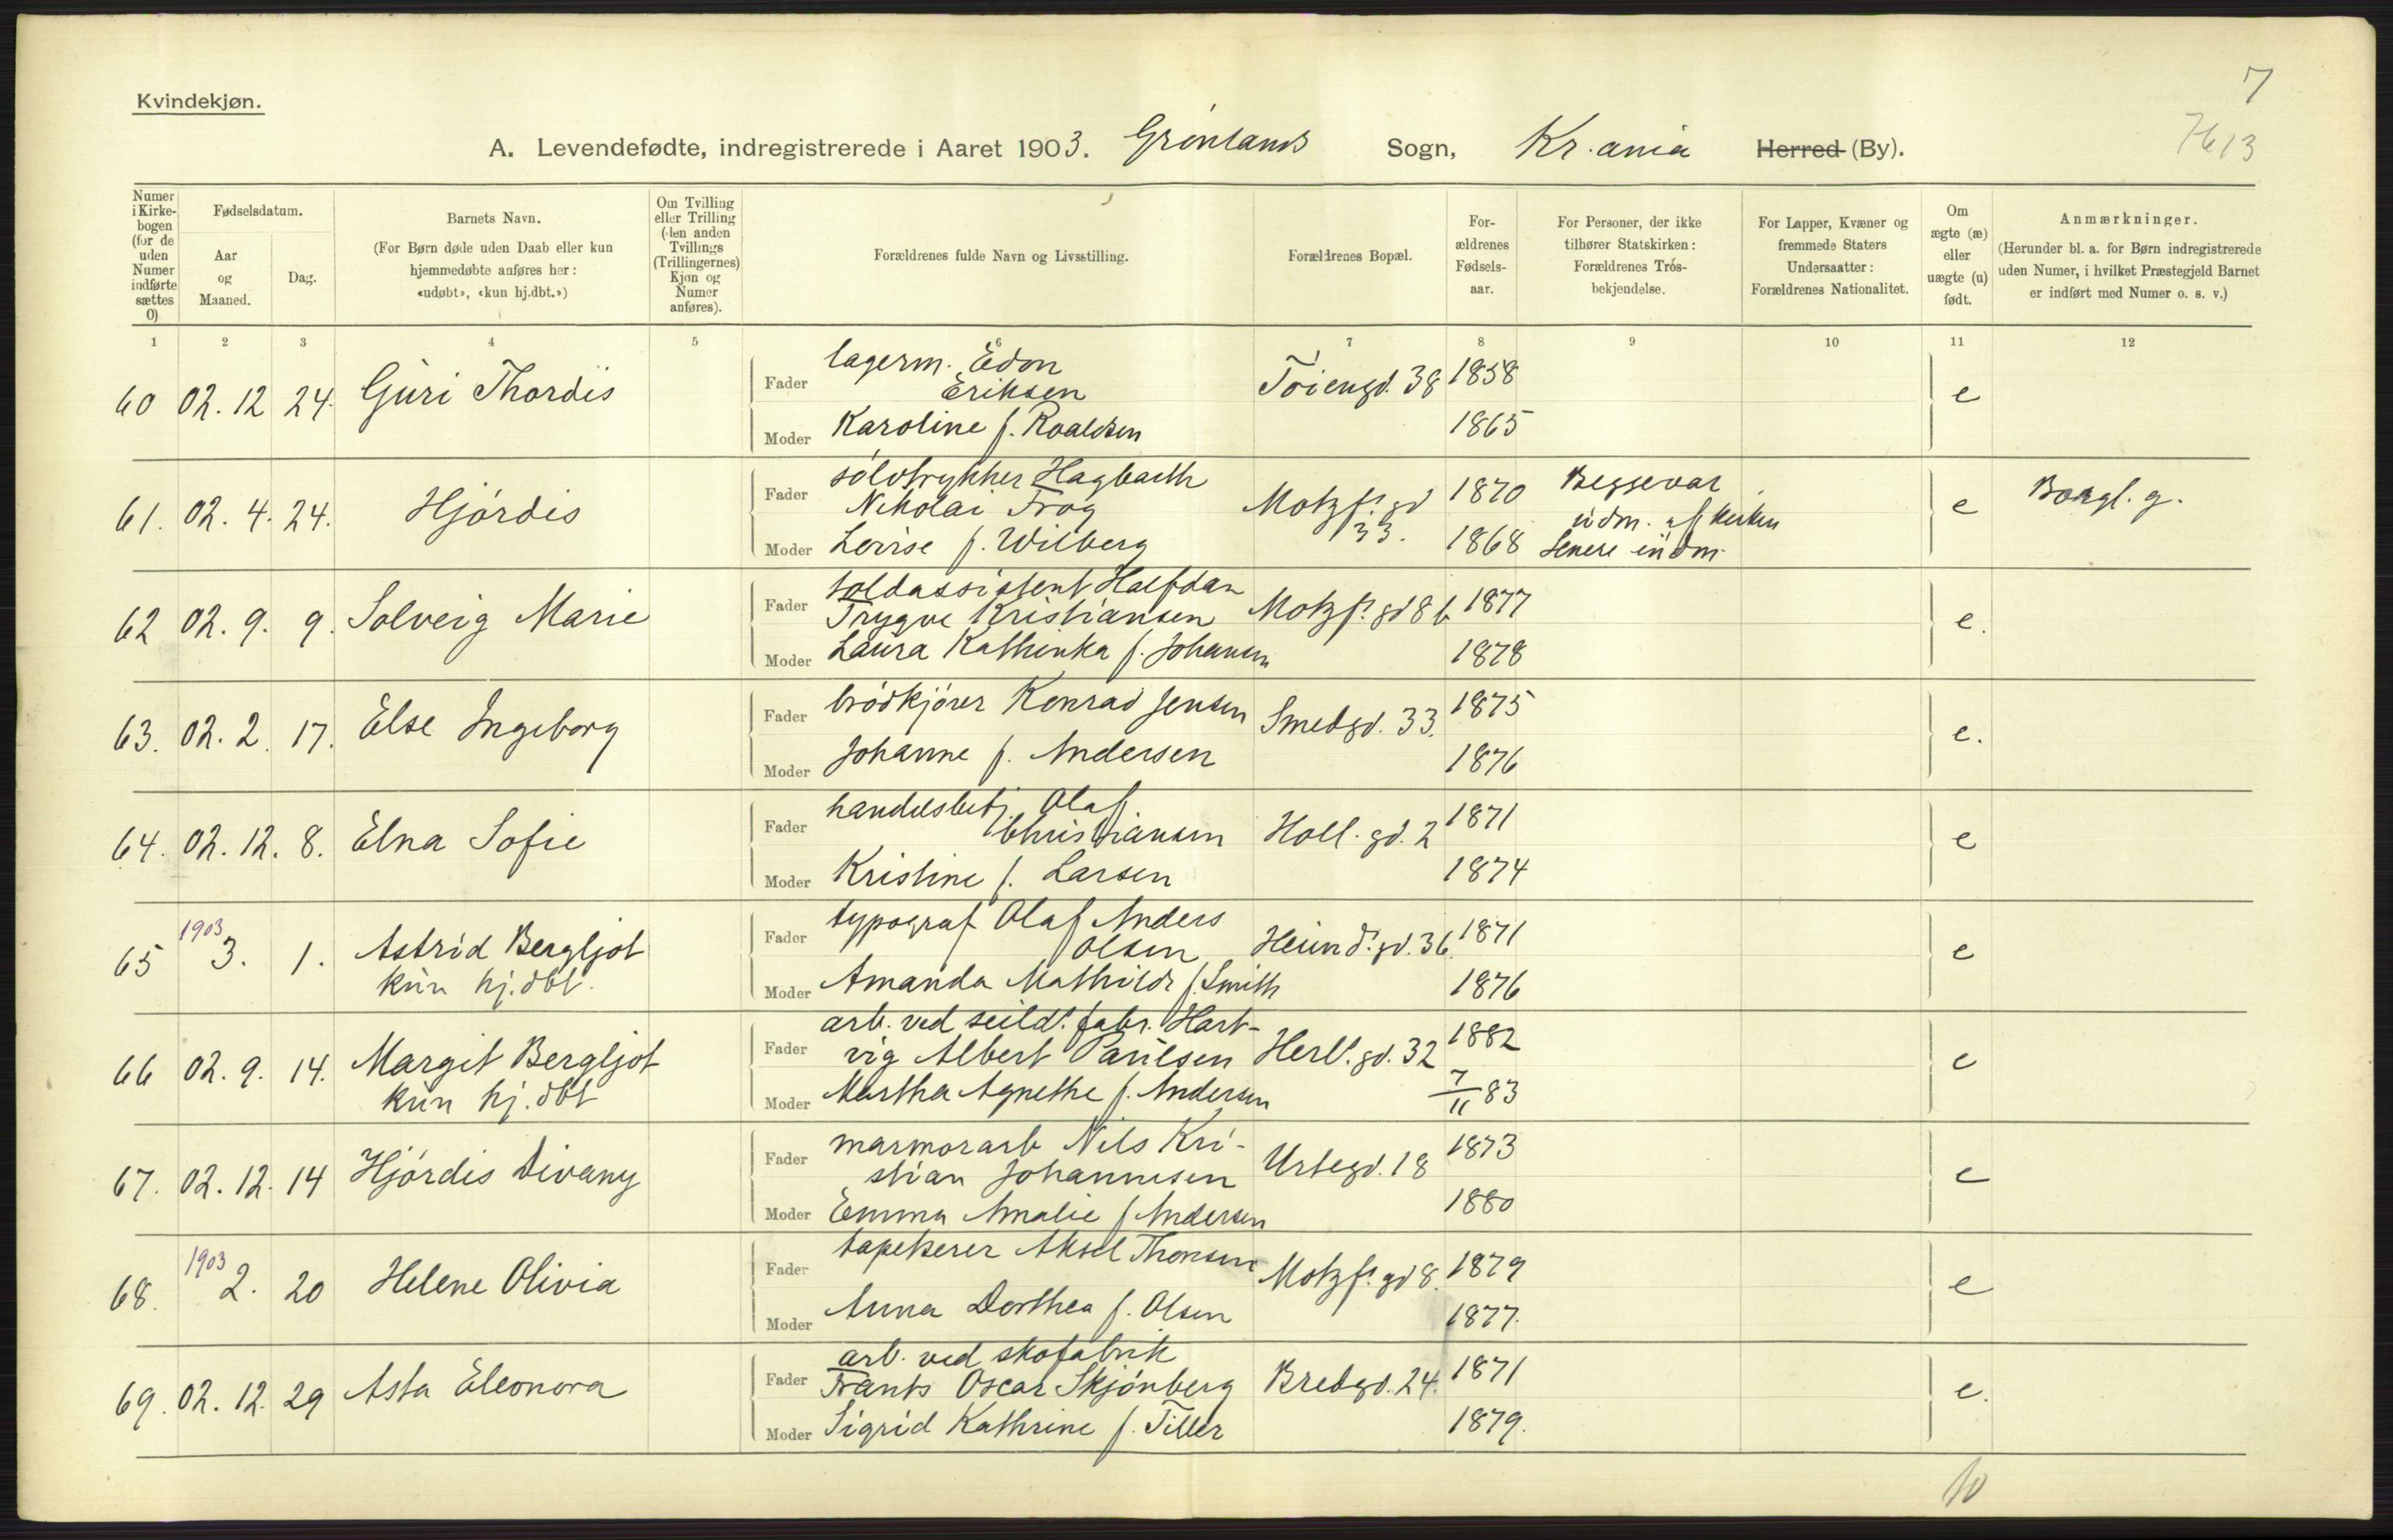 7
Kvindekjøn.
7613
A. Levendefødte, indregistrerede i Aaret 1903. Grønlands Sogn, Kr.ania Herred (By).
Numer i Kirkebogen (for de uden Numer indførte sættes 0)
Fødselsdatum.
Aar og Maaned.
Dag.
Barnets Navn.
(For Børn døde uden Daab eller kun hjemmedøbte anføres her: «udøbt», «kun hj.dbt.»)
Om Tvilling eller Trilling (den anden Tvillings (Trillingernes) Kjøn og Numer anføres).
Forældrenes fulde Navn og Livsstilling.
Forældrenes Bopæl.
Forældrenes Fødselsaar.
For Personer, der ikke tilhører Statskirken: Forældrenes Trosbekjendelse.
For Lapper, Kvæner og fremmede Staters Undersaatter: Forældrenes Nationalitet.
Om ægte (æ) eller uægte (u) født.
Anmærkninger.
(Herunder bl. a. for Børn indregistrerede uden Numer, i hvilket Præstegjeld Barnet er indført med Numer o. s. v.)
1 2 3 4 5 6 7 8 9 10 11 12
60 02.12 24. Guri Thordis
Fader lagerm. Edon
Eriksen Tøiengd. 38 1858 e
Moder Karoline f. Roaldsen 1865
61. 02.4. 24. Hjørdis
Fader sølvtrykker Hagbarth
Nikolai Frog Motzf.s gd 33. 1870 e
Moder Lovise f. Wilberg 1868
Begge var
udm. af kirken
senere indm.
Borgl. g.
62 02.9. 9. Solveig Marie
Fader toldassistent Halfdan
Trygve Kristiansen Motzf.s gd 8 b 1877 e.
Moder Laura Kathinka f. Johansen 1878
63. 02.2. 17. Else Ingeborg
Fader brødkjører Konrad Jensen Smedgd. 33. 1875 e.
Moder Johanne f. Andersen 1876
64. 02.12. 8. Elna Sofie
Fader handelsbetj. Olaf
Christiansen Holl. gd. 2 1871 e
Moder Kristine f. Larsen 1874
65 1903 3. 1. Astrid Bergljot
kun hj.dbt.
Fader typograf Olaf Anders
Olsen Heimd.s gd. 36. 1871 e
Moder Amanda Mathilde f. Smith 1876
66 02.9. 14. Margit Bergljot
kun hj.dbt
Fader arb. ved seild.s fabr. Hart-
vig Albert Paulsen Herl.s gd. 32 1882 e
Moder Martha Agnethe f. Andersen 7/11 83
67. 02.12. 14 Hjørdis Divany
Fader marmorarb Nils Kri-
stian Johannesen Urtegd. 18 1873 e
Moder Emma Amalie f Andersen 1880
68. 1903 2. 20 Helene Olivia
Fader tapetserer Aksel Thorsen Motzf.s gd 8. 1879 e
Moder Anna Dorthea f. Olsen 1877.
69. 02.12. 29 Asta Eleonora
Fader arb. ved skofabrik
Frants Oscar Skjønberg Bredgd. 24. 1871 e.
Moder Sigrid Kathrine f. Tiller 1879.
10